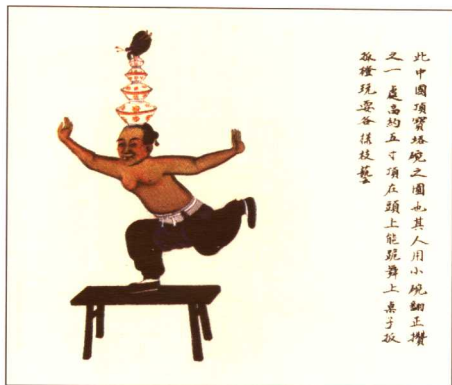 此中國頂寶塔碗之圖也其人用小碗翻正攢
之一處高約五寸頂在頭上能跪舞上桌子扳
板櫈玩耍各樣技藝